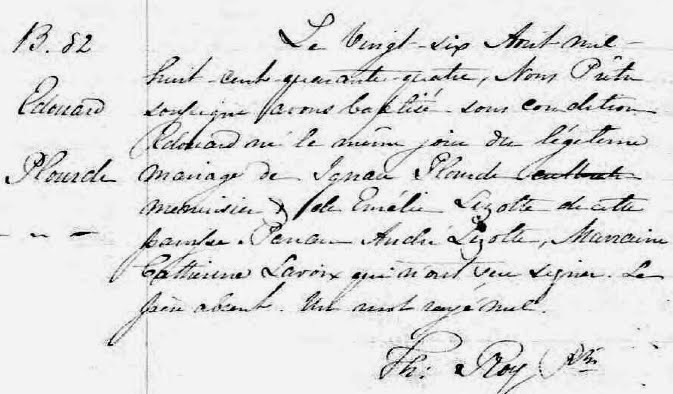 B. 82
Edouard
Plourde
Le Vingt-six Aout mil-
huit-cent-quarante-quatre, Nous Prêtre
soussigné avons baptisé sous condition
Edouard né le même jour du légitime
mariage de Ignace Plourde
menuisier & de Emélie Lizotte de cette
paroisse. Parrain André Lizotte, Marraine
Catherine Lavoix qui n'ont su signer. Le
père absent. Un mot rayé nul.
Th: Roy Ptre